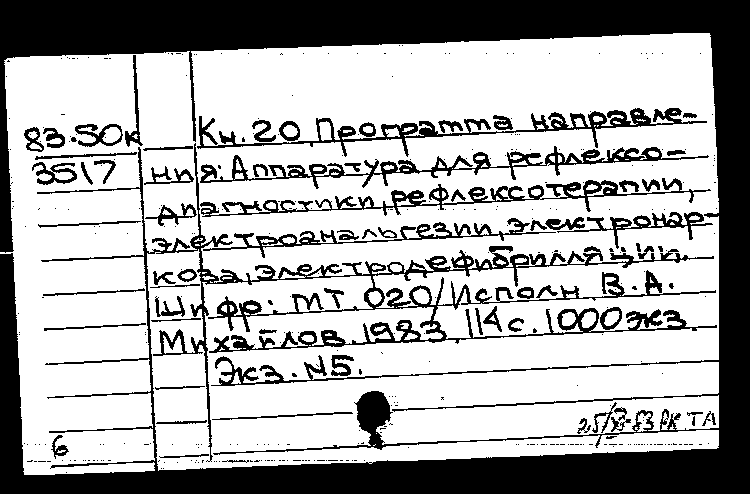 83.50к Кн. 20. Программа направле-
3517 ния: Аппаратура для рефлексо-
диагностики, рефлексотерапии,
электроанальгезии, электронар-
коза, электродефибрилляции.
Шифр: МТ. 020/Исполн. В.А.
Михайлов. 1983. 114 с. 1000 экз.
Экз. N5.
6 25/XI-83 РК ТА